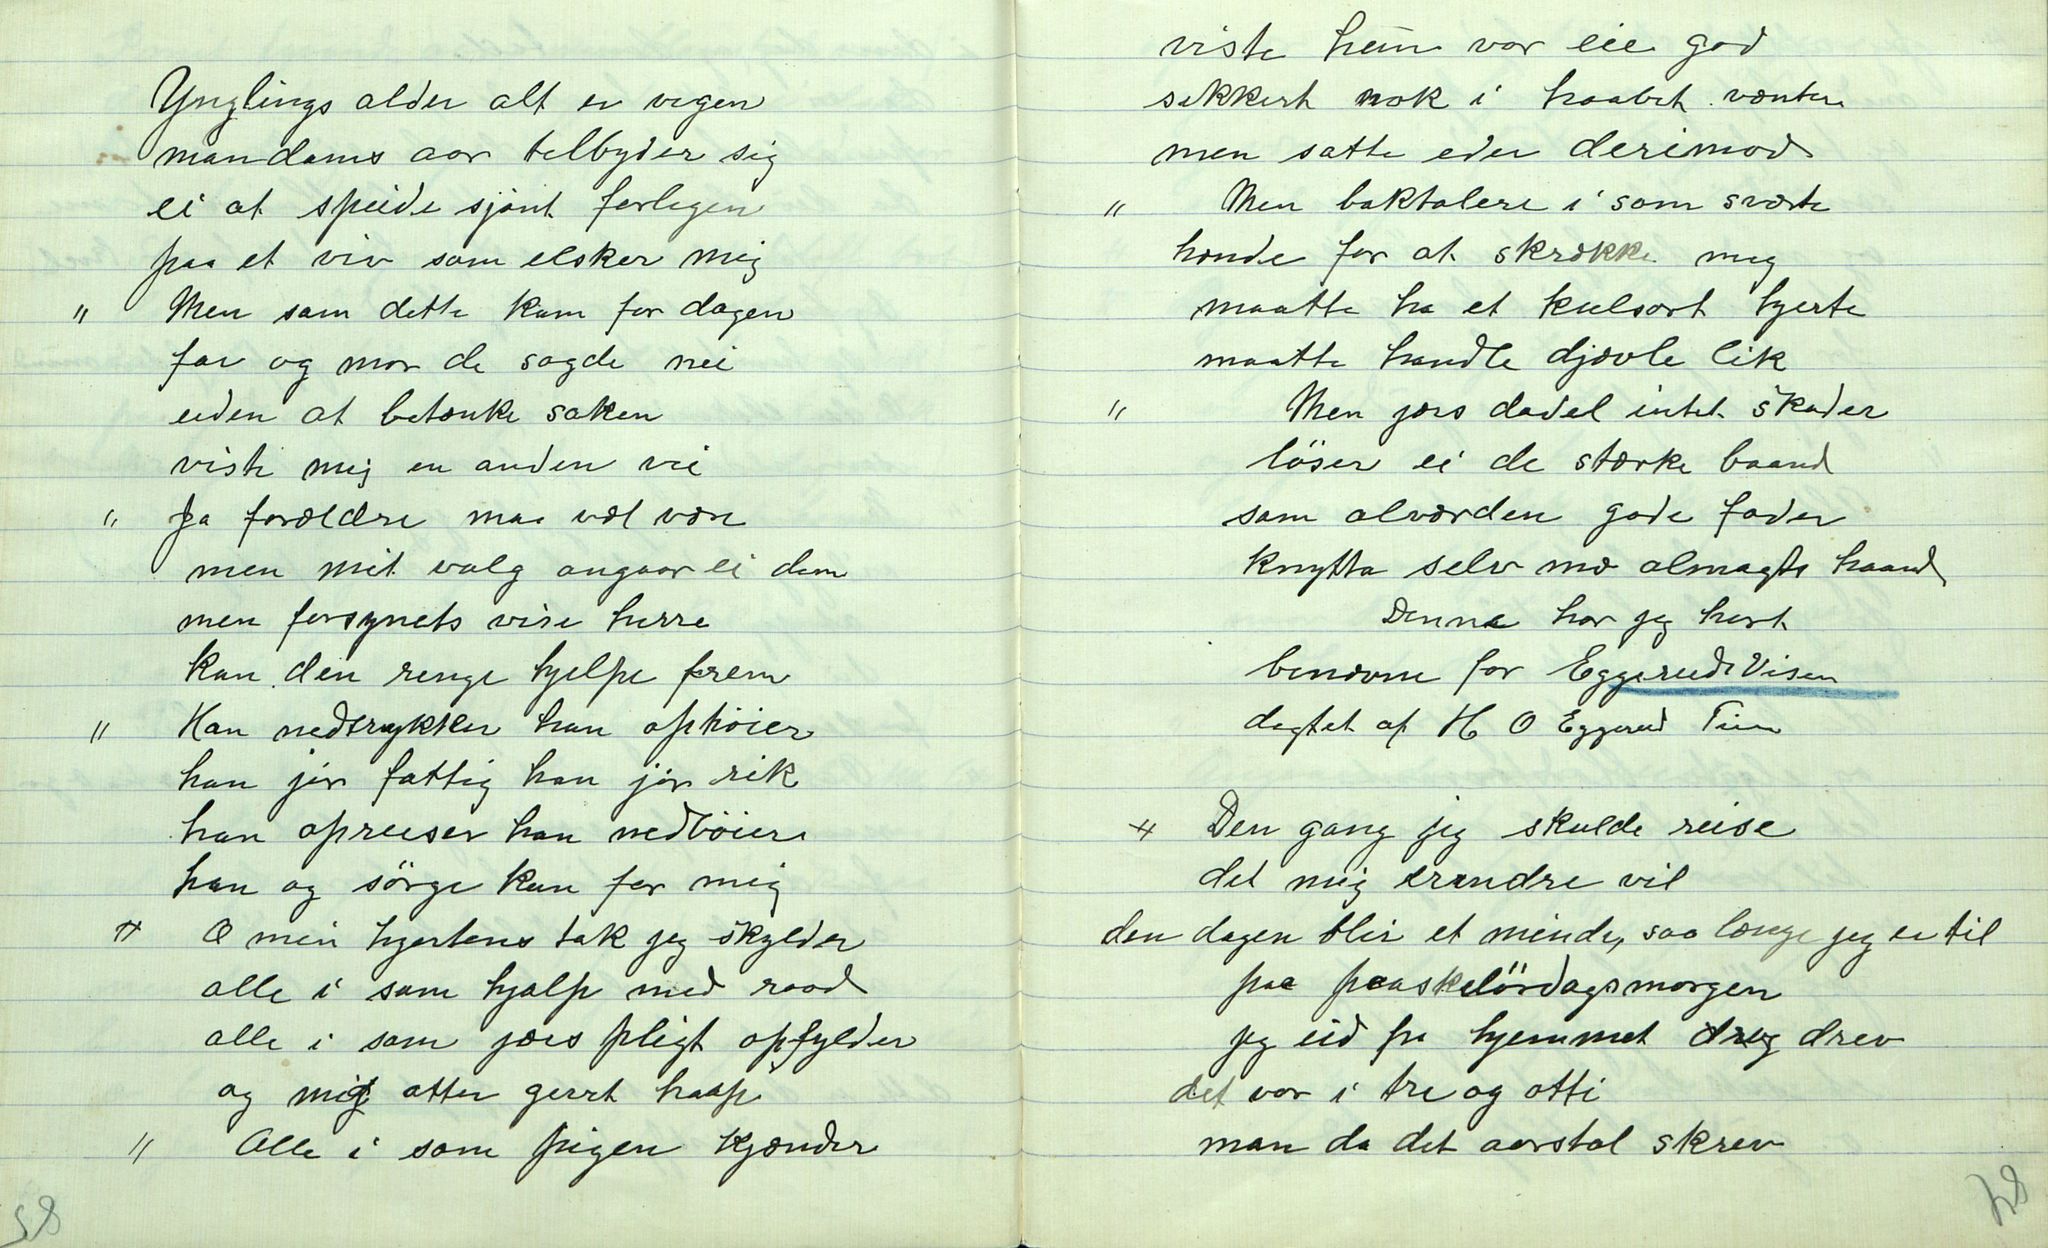 Ynglings alder alt er vegen
mandoms aar telbyder sig
ei at speide sjønt forlegen
paa et viv som elsker mig
" Men som dette kom for dagen
far og mor de sagde nei
uden at betænke saken
viste mig en anden vei
" Ja forældre maa væl være
men mit valg angaar ei dem
men forsynets vise herre
kan den renge hjelpe frem
" Han nedtrykker han ophöier
han jör fattig han jör rik
han opreiser han nedböier
han og sörge kan for mig
" O min hjertens tak jeg skylder
alle i som hjalp med raad
alle i som jærs pligt opfylder
og mig atter gerrt haap
" Alle i som pigen kjænder
58
viste hun var eie god
sekkert nok i haabet vænter
men satte eder derimod
" Men baktalere i som sværte
hende for at skrække mig
maatte ha et kulsort hjerte
maatte handle djævle lik
" Men jærs dadel intet skader
löser ei de stærke baand
som alværden gode fader
knytta selv mæ almagts haand
Denne har jeg hørt
benævne for Eggerud Visen
degtet af H O Eggerud Tinn
" Den gang jeg skulde reise
det mig erindre vil
den dagen blir et minde, saa længe jeg er til
paa paaskelördagsmorgen
jeg ud fra hjemmet drog drev
det var i tre og otti
man da det aarstal skrev